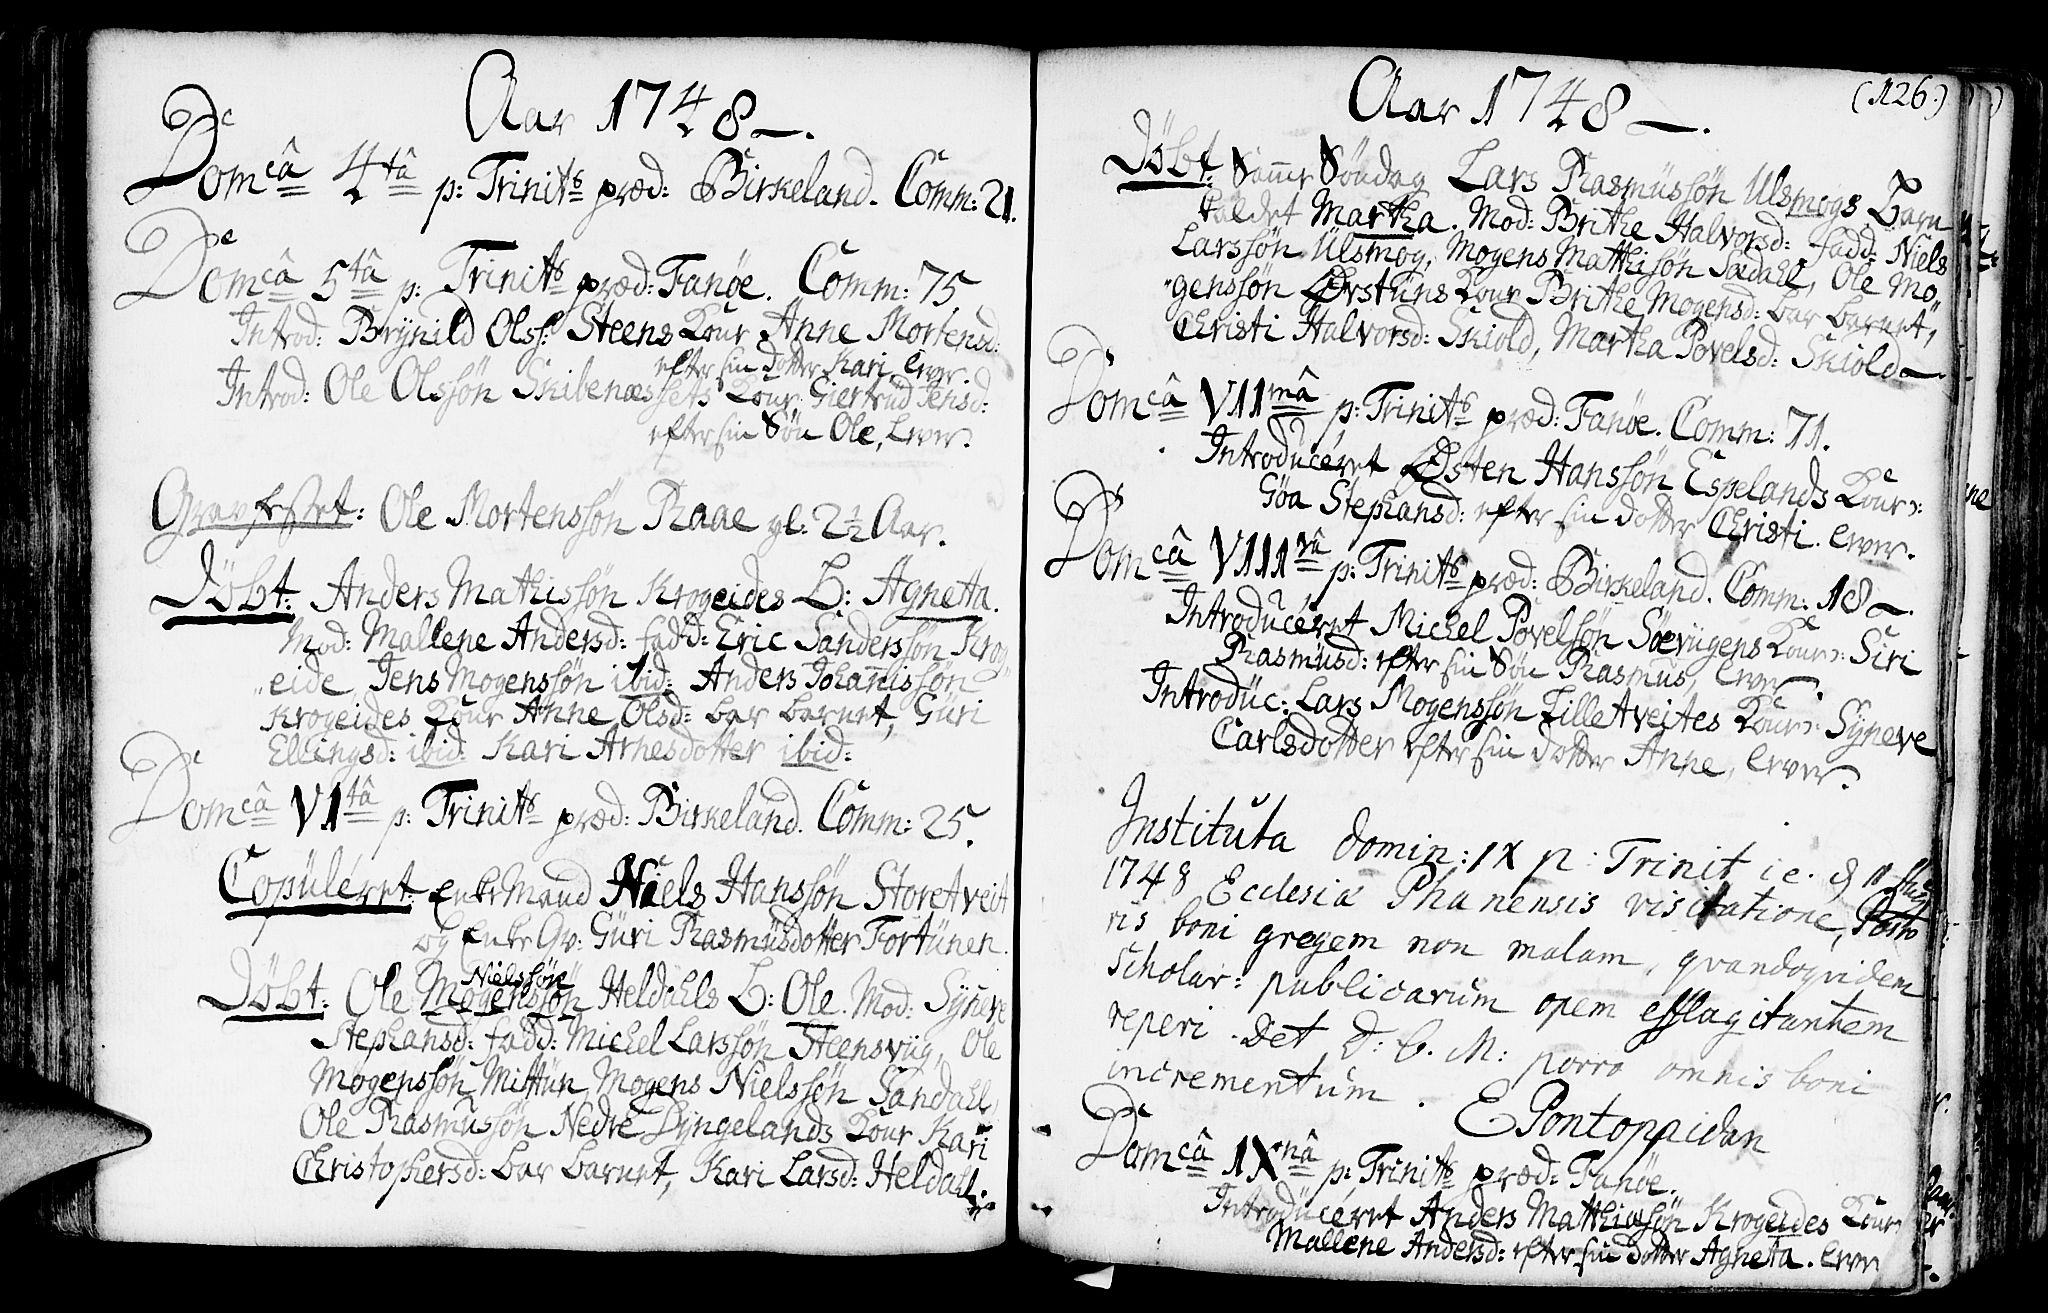 Aar 1748.
De Domcâ 4tâ p: Trinits præd: Birkeland. Comm: 21.
De Domcâ 5tâ p: Trinits præd: Fanöe. Comm: 75
Introd: Brÿnild Olsf: Steens Kone Anne Mortensd:
efter sin dotter Kari, lever.
Introd: Ole Olssön Skibenæssets Kone Giertrüd Jensd:
efter sin Sön Ole, lever.
Gravfestet: Ole Mortenssön Raae gl. 2½ Aar.
Döbt: Anders Mathissön Krogeides B: Agneta.
Mod: Mallene Andersd: fadd: Eric Sanderssön Krog„
„eide, Jens Mogenssön ibid: Anders Johannissön
Krogeides Kone Anne Olsd: bar barnet, Guri
Ellingsd: ibid: Kari Arnesdotter ibid:
De Domcâ VItâ p: Trinits præd: Birkeland. Comm: 25.
Copüléret: EnkeMand Niels Hanssön Storetveit
og Enke Qv: Güri Rasmüsdotter Fortünen.
Nielssön
Döbt: Ole Mogenssön Heldahls B: Ole. Mod: Sÿnere
Stephansd: fadd: Michel Larssön Steensviig, Ole
Mogenssön Mittün, Mogens Nielssön Sandahl,
Ole Rasmussön Nedre Tÿngelands Kone Kari
Christophersd: bar barnet, Kari Larsd: Heldahl.
Aar 1748.
(126.)
Döbt: Samme Söndag Lars Rasmüssön Ulsmogs Barn
kaldet Martha. Mod: Brithe Halvorsd: fadd: Niels
Larssön Ulsmog, Mogens Matthisön Sædahl, Ole Mo„
„genssön Örstüns Kone Brithe Mogensd: bar barnet,
Christi Halvorsd: Skiold, Martha Povelsd: Skiold
Ds Domcâ VIImâ p: Trinits præd: Fanöe. Comm: 71.
Introdücéret Østen Hanssön Espelands Kone:
Göa Stephansd: efter sin dotter Christi. lever.
Ds Domcâ VIIIvâ p: Trinits præd: Birkeland. Comm: 18.
Introdücéret Michel Povelsön Söevügens Kone: Siri
Rasmüsd: efter sin Sön Rasmus, lever.
Introdüc: Lars Mogenssön Lilletveites Kone: Sÿneve
Carlsdotter efter sin dotter Anne, lever.
Instituta domin: IX p: Trinit i.e. d 11 Aug
1748 Ecclesiæ Phanensis visitatione, Pasto
ris boni gregem non malam, qvandoqvidem
Scholar: publicarum opem efflagitantem
reperi. Det D: O. M: porro omnis boni
incrementum.
E Pontoppidan
De Domcâ IXnâ p: Trinits præd: Fanöe.
Introdücéret Anders Matthiasön Krogeides Kone
Mallene Andersd: efter sin dotter Agneta. lever